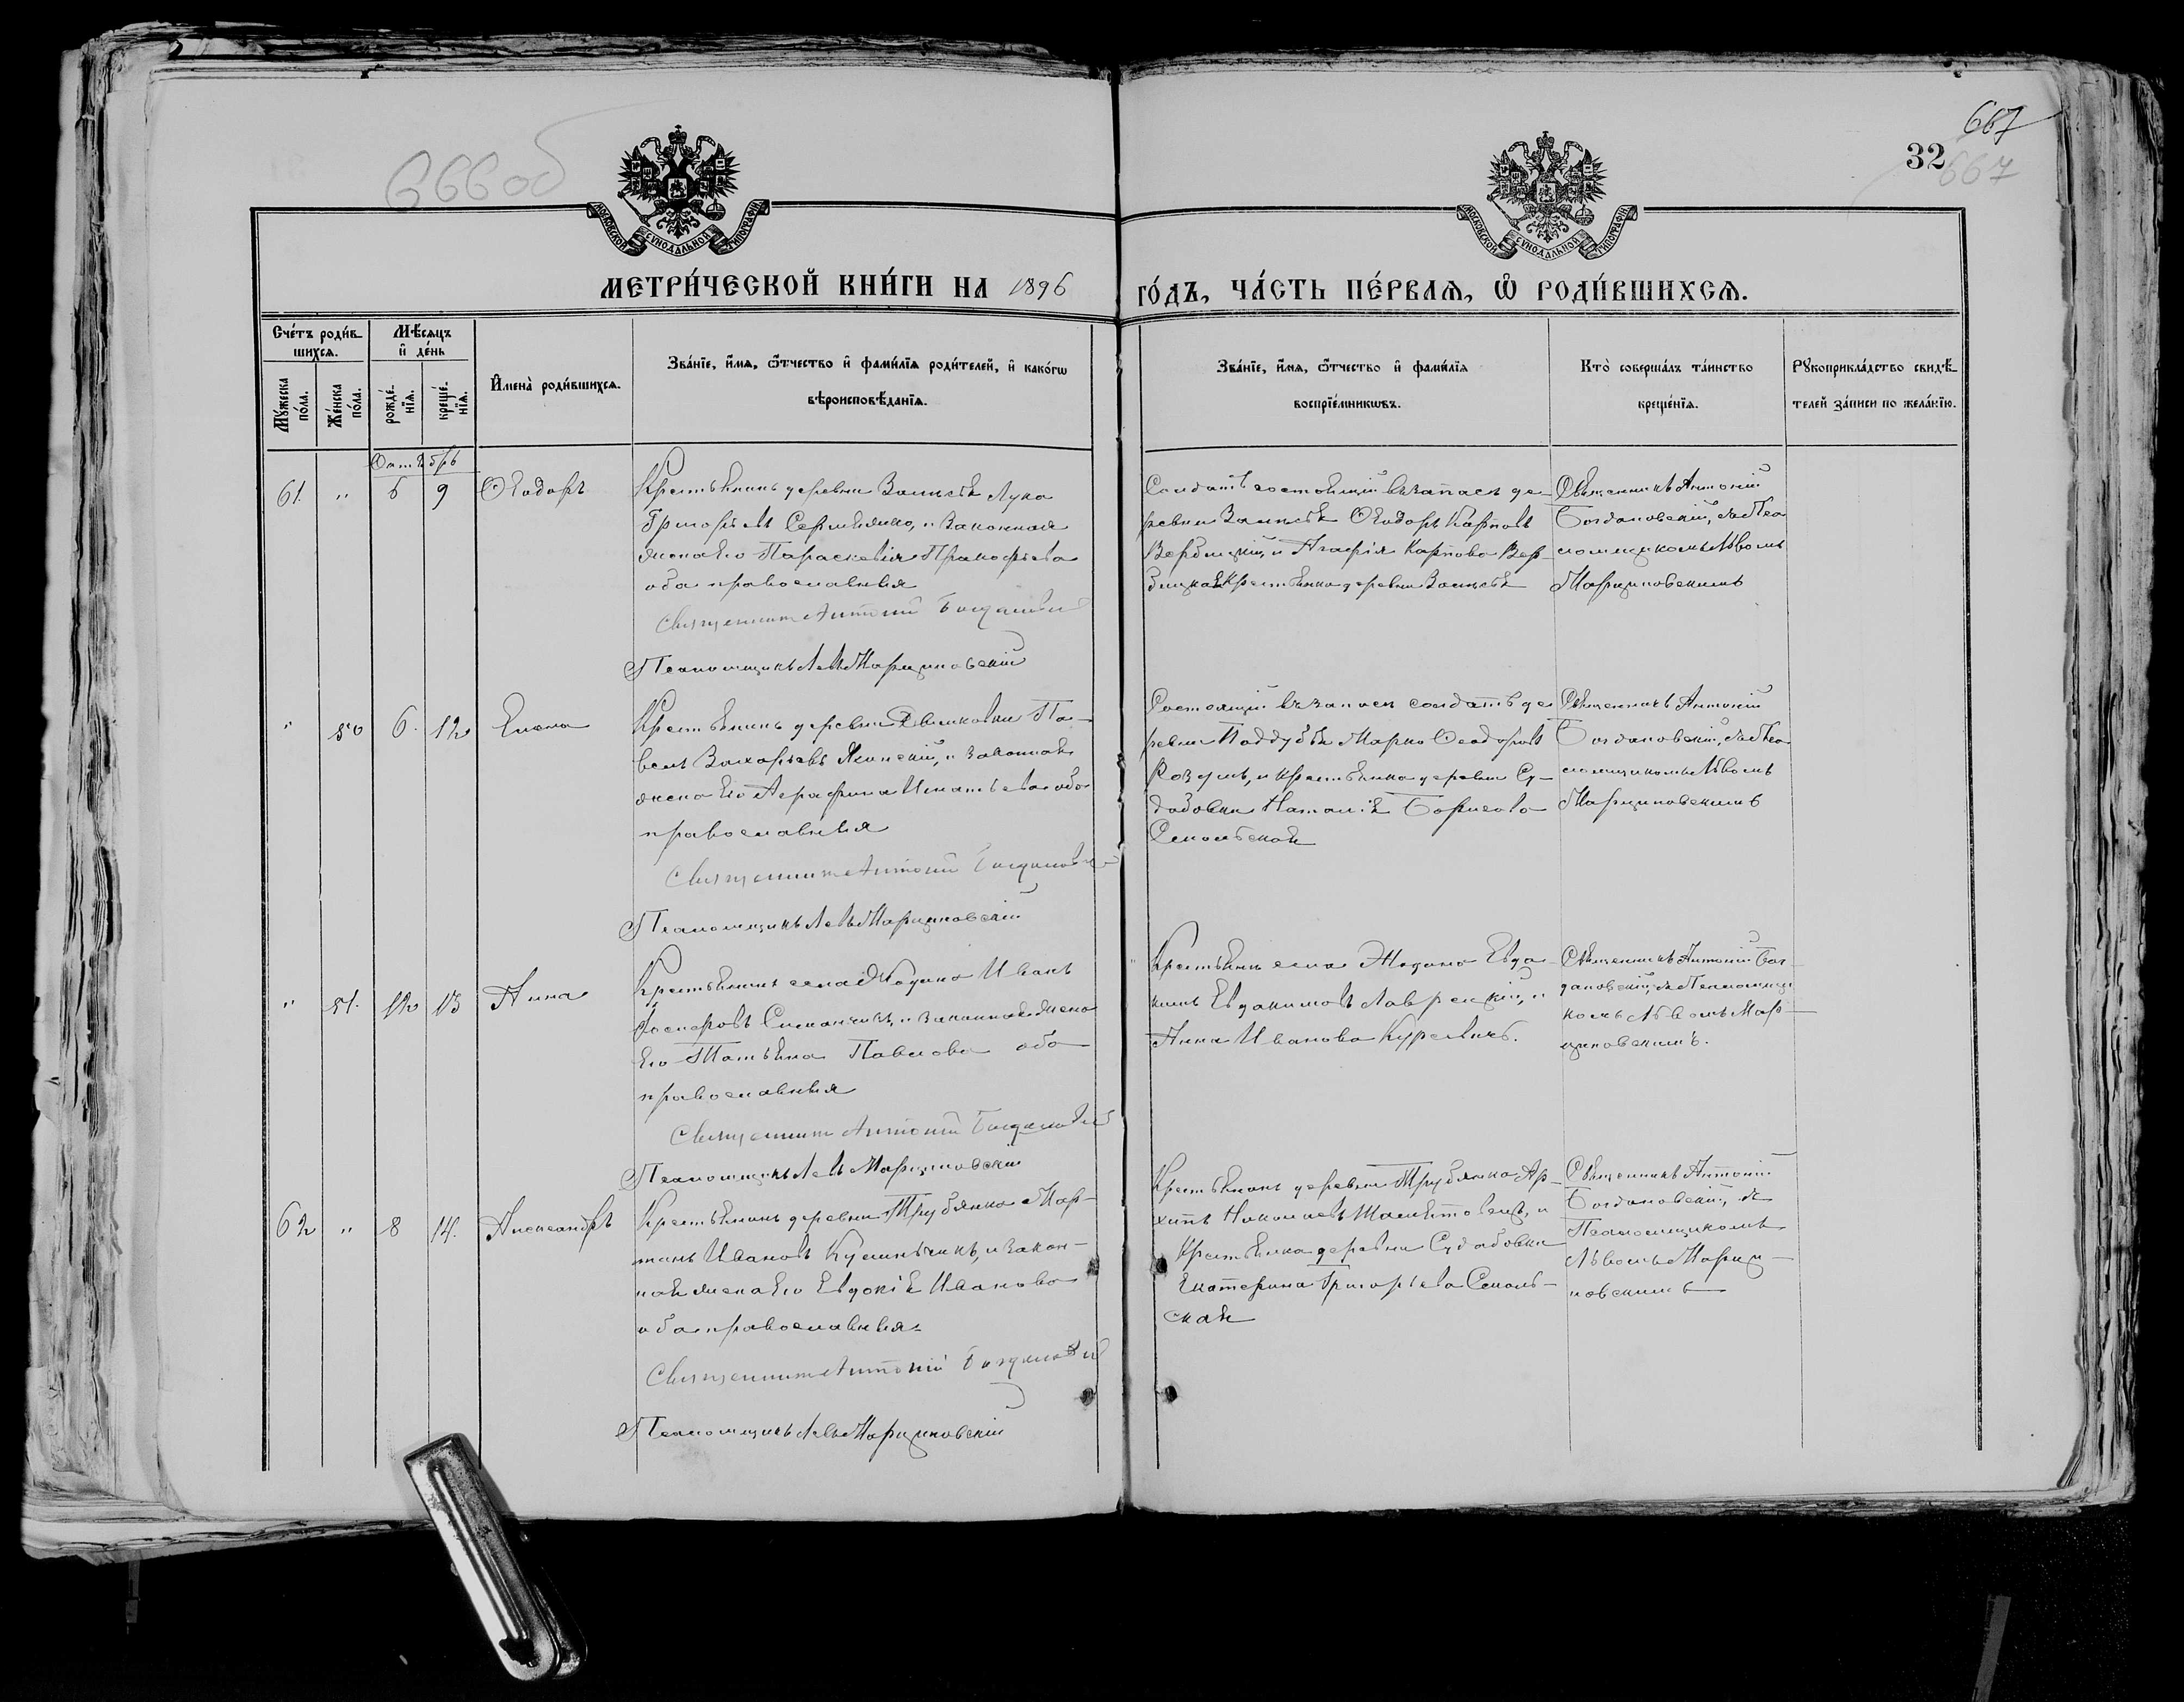 667
32
667
666об
МОСКОВСКОЙ СѴНОДАЛЬНОЙ ТИПОГРАФІИ
МОСКОВСКОЙ СѴНОДАЛЬНОЙ ТИПОГРАФІИ
МЕТРИ́ЧЕСКОЙ КНИ́ГИ НА 1896
ГО́ДЪ, ЧА́СТЬ ПЕ́РВАѦ, Ѽ РОДИ́ВШИХСѦ.
Сче́тъ роди́в-
шихсѧ.
Мѹ́жеска
по́ла.
Же́нска
по́ла.
Мѣ́сѧцъ
и҆ де́нь
рожде́-
нїѧ.
креще́-
нїѧ.
И҆мена̀ роди́вшихсѧ.
Зва́нїе, и҆́мѧ, ѻ҆́тчество и҆ фами́лїѧ роди́телей, и҆ како́гѡ
вѣроисповѣ́данїѧ.
Зва́нїе, и҆́мѧ, ѻ҆́тчество и҆ фами́лїѧ
воспрїе́мникѡвъ.
Кто̀ соверша́лъ та́инство
креще́нїѧ.
Рꙋкоприкла́дство свидѣ́-
телей за́писи по жела́нїю.
Октябрь
61. " 6 9 Ѳеодоръ
Крестьянинъ деревни Лука
Григорьевъ и законная
жена его Параскевія Прокофьева
оба православныя
Священникъ Антоній Богдановскій
Псаломщикъ Левъ Марциновскій
Солдатъ состоящій въ запасѣ де-
ревни Ѳеодоръ Карповъ
Вербицкій, и Агафія Карпова Вер-
бицкая Крестьянка деревни
Священникъ Антоній
Богдановскій, съ Пса-
ломщикомъ Львомъ
Марциновскимъ
" 50 6. 12 Елена
Крестьянинъ деревни Па-
велъ Захарьевъ и законная
жена его Агрофина Игнатьева оба
православныя
Священникъ Антоній Богдановскій
Псаломщикъ Левъ Марциновскій
Состоящій въ запасѣ солдатъ де
ревни Поддубы Марко Ѳеодоровъ
Козулъ, и крестьянка деревни Су-
добовки Наталія Борисова
Сокольская
Священникъ Антоній
Богдановскій, съ Пса-
ломщикомъ Львомъ
Марциновскимъ
" 51. 12 13 Анна
Крестьянинъ села Жодино Иванъ
и законная жена
его Татьяна Павлова оба
православныя
Священникъ Антоній Богдановскій
Псаломщикъ Левъ Марциновскій
Крестьянинъ села Жодино Евдо-
кимъ Евдокимовъ и
Анна Иванова Курсевичъ.
Священникъ Антоній Бог-
дановскій, съ Псаломщи
комъ Львомъ Мар-
циновскимъ.
62 " 8 14. Александръ
Крестьянинъ деревни Трубянко Мар-
тинъ Ивановъ и закон-
ная жена его Евдокія Иванова
оба православныя
Священникъ Антоній Богдановскій
Псаломщикъ Левъ Марциновскій
Крестьянинъ деревни Трубянко Ар-
хипъ Николаевъ и
Крестьянка деревни Судобовки
Екатерина Григорьева Соколь-
ская
Священникъ Антоній
Богдановскій, съ
Псаломщикомъ
Львомъ Марци-
новскимъ